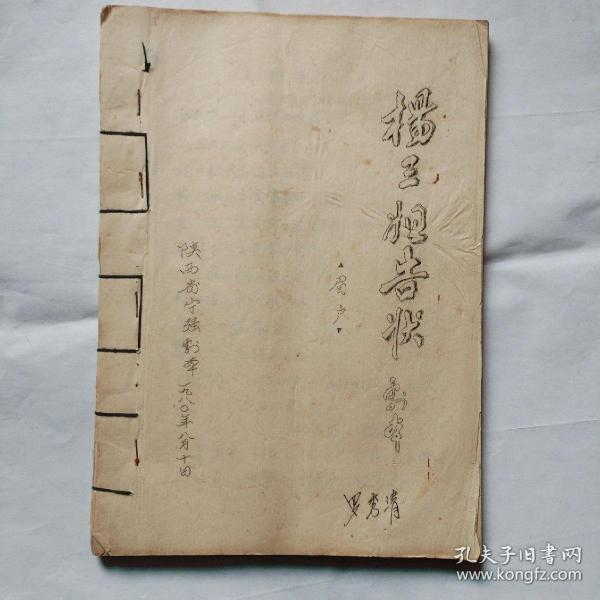 楊三姐告状 剧本
眉户
陕西省宁强剧本一九八〇年八月十日
罗秀清
孔夫子旧书网
www.kongfz.com